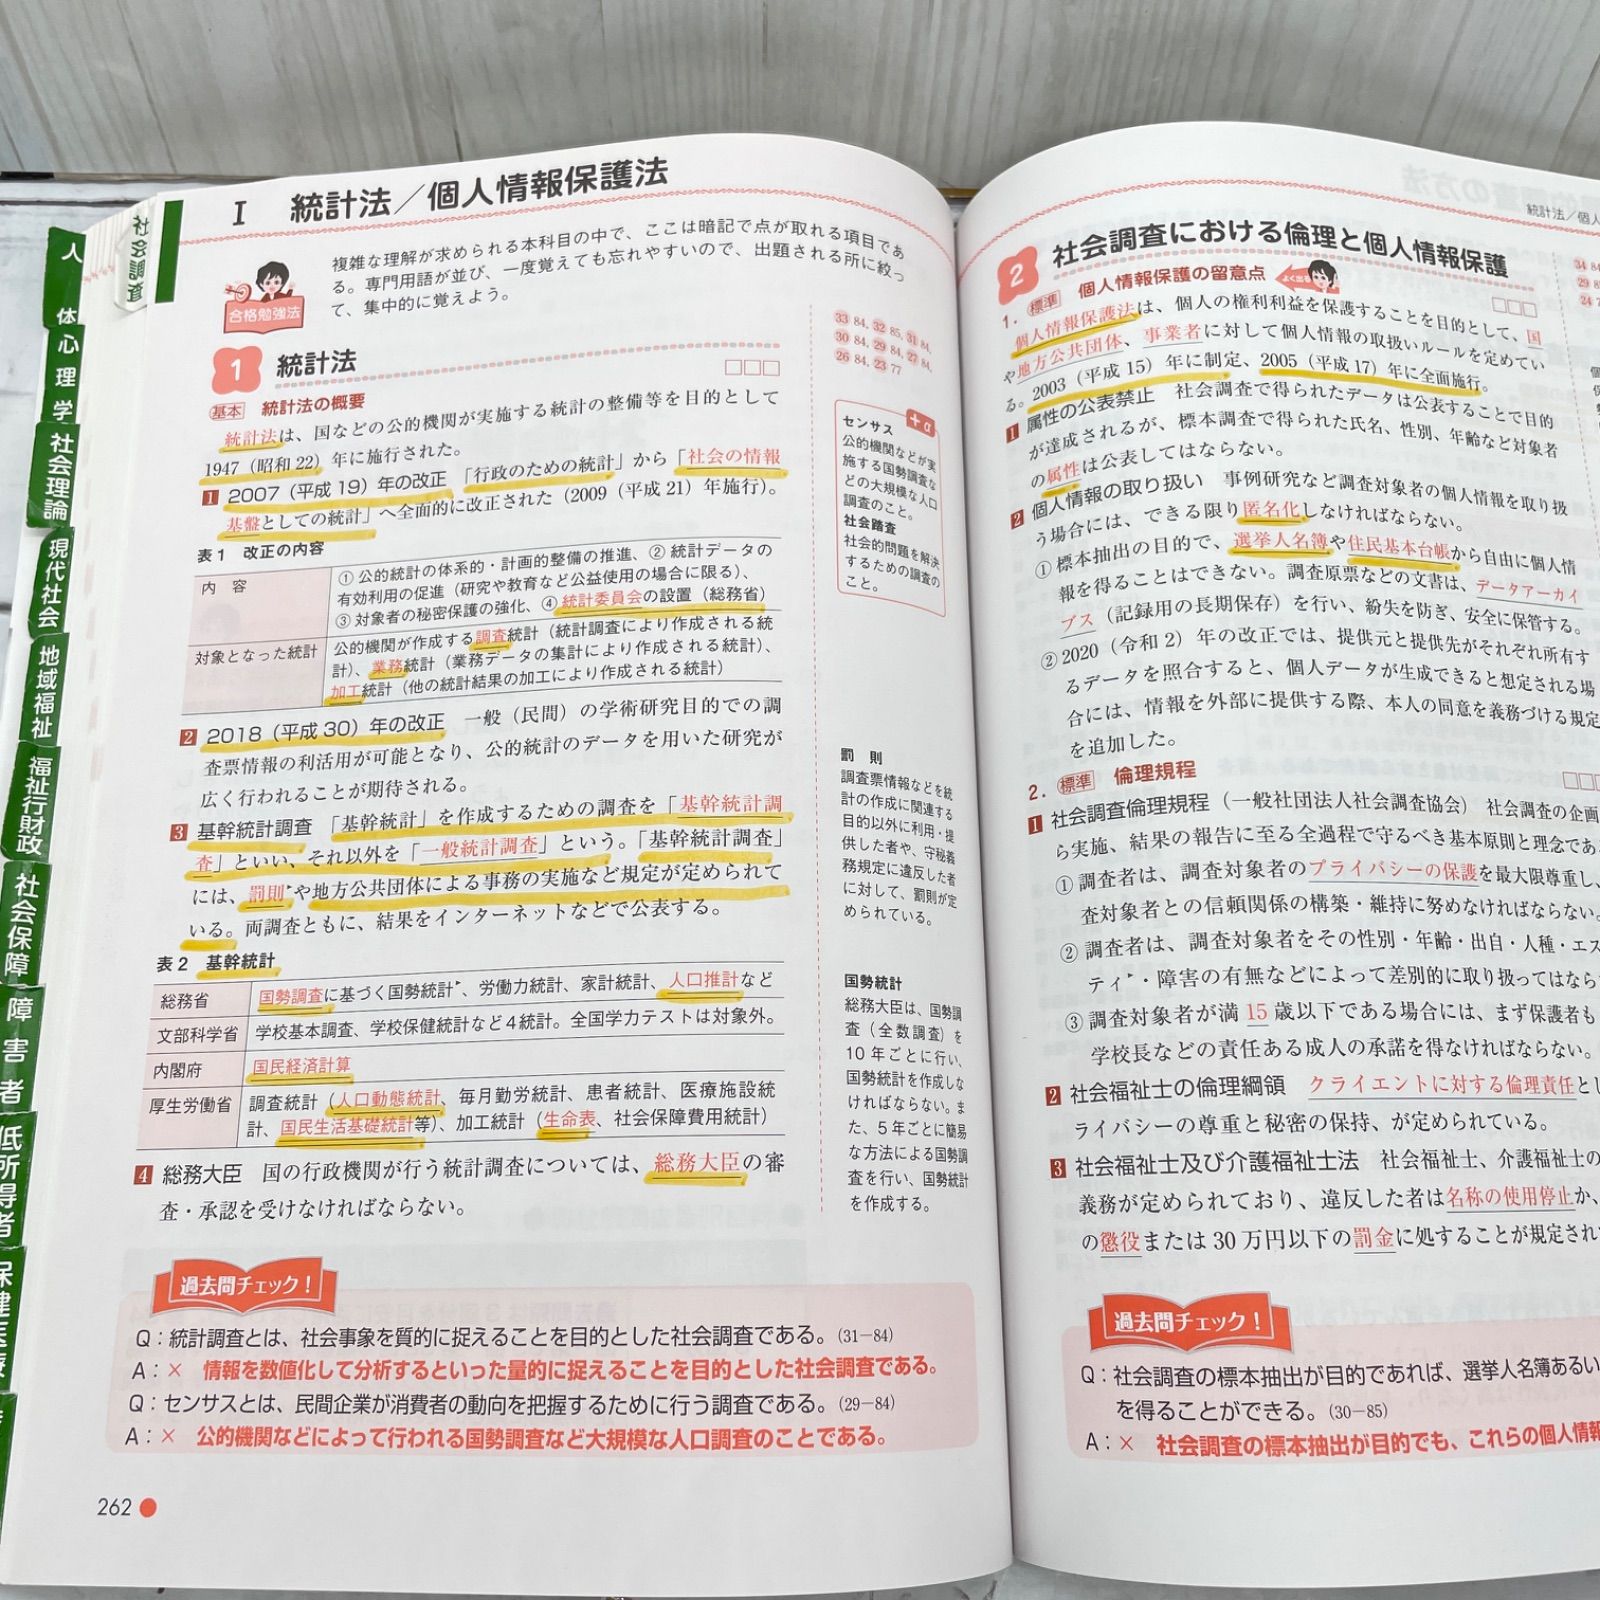 人体
心理学
社会理論
現代社会
地域福祉
福祉行財政
社会保障
障害者
低所得者
社会調査
I 統計法／個人情報保護法
合格勉強法
複雑な理解が求められる本科目の中で、ここは暗記で点が取れる項目であ
る。専門用語が並び、一度覚えても忘れやすいので、出題される所に絞っ
て、集中的に覚えよう。
1 統計法 □□□
基本 統計法の概要
統計法は、国などの公的機関が実施する統計の整備等を目的として
1947（昭和22）年に施行された。
1 2007（平成19）年の改正 「行政のための統計」から「社会の情報
基盤としての統計」へ全面的に改正された（2009（平成21）年施行）。
表1 改正の内容
内 容
① 公的統計の体系的・計画的整備の推進、② 統計データの
有効利用の促進（研究や教育など公益使用の場合に限る）、
③ 対象者の秘密保護の強化、④ 統計委員会の設置（総務省）
対象となった統計
公的機関が作成する調査統計（統計調査により作成される統
計）、業務統計（業務データの集計により作成される統計）、
加工統計（他の統計結果の加工により作成される統計）
2 2018（平成30）年の改正 一般（民間）の学術研究目的での調
査票情報の利活用が可能となり、公的統計のデータを用いた研究が
広く行われることが期待される。
3 基幹統計調査 「基幹統計」を作成するための調査を「基幹統計調
査」といい、それ以外を「一般統計調査」という。「基幹統計調査」
には、罰則や地方公共団体による事務の実施など規定が定められて
いる。両調査ともに、結果をインターネットなどで公表する。
表2 基幹統計
総務省 国勢調査に基づく国勢統計、労働力統計、家計統計、人口推計など
文部科学省 学校基本調査、学校保健統計など4統計。全国学力テストは対象外。
内閣府 国民経済計算
厚生労働省 調査統計（人口動態統計、毎月勤労統計、患者統計、医療施設統
計、国民生活基礎統計等）、加工統計（生命表、社会保障費用統計）
4 総務大臣 国の行政機関が行う統計調査については、総務大臣の審
査・承認を受けなければならない。
33 84, 32 85, 31 84,
30 84, 29 84, 27 84,
26 84, 23 77
＋α
センサス
公的機関などが実
施する国勢調査な
どの大規模な人口
調査のこと。
社会踏査
社会的問題を解決
するための調査の
こと。
罰 則
調査票情報などを統
計の作成に関連する
目的以外に利用・提
供した者や、守秘義
務規定に違反した者
に対して、罰則が定
められている。
国勢統計
総務大臣は、国勢調
査（全数調査）を
10年ごとに行い、
国勢統計を作成しな
ければならない。ま
た、5年ごとに簡易
な方法による国勢調
査を行い、国勢統計
を作成する。
過去問チェック！
Q：統計調査とは、社会事象を質的に捉えることを目的とした社会調査である。（31－84）
A：× 情報を数値化して分析するといった量的に捉えることを目的とした社会調査である。
Q：センサスとは、民間企業が消費者の動向を把握するために行う調査である。（29－84）
A：× 公的機関などによって行われる国勢調査など大規模な人口調査のことである。
262
統計法／個人
2 社会調査における倫理と個人情報保護
1. 標準 個人情報保護の留意点 よく出る □□□
個人情報保護法は、個人の権利利益を保護することを目的として、国
や地方公共団体、事業者に対して個人情報の取扱いルールを定めてい
る。2003（平成15）年に制定、2005（平成17）年に全面施行。
1 属性の公表禁止 社会調査で得られたデータは公表することで目的
が達成されるが、標本調査で得られた氏名、性別、年齢など対象者
の属性は公表してはならない。
2 個人情報の取り扱い 事例研究など調査対象者の個人情報を取り扱
う場合には、できる限り匿名化しなければならない。
① 標本抽出の目的で、選挙人名簿や住民基本台帳から自由に個人情
報を得ることはできない。調査原票などの文書は、データアーカイ
ブス（記録用の長期保存）を行い、紛失を防ぎ、安全に保管する。
② 2020（令和2）年の改正では、提供元と提供先がそれぞれ所有す
るデータを照合すると、個人データが生成できると想定される場
合には、情報を外部に提供する際、本人の同意を義務づける規定
を追加した。
2. 標準 倫理規程 □□
1 社会調査倫理規程（一般社団法人社会調査協会） 社会調査の企画
ら実施、結果の報告に至る全過程で守るべき基本原則と理念であ
① 調査者は、調査対象者のプライバシーの保護を最大限尊重し、
査対象者との信頼関係の構築・維持に努めなければならない。
② 調査者は、調査対象者をその性別・年齢・出自・人種・エス
ティ・障害の有無などによって差別的に取り扱ってはならな
③ 調査対象者が満15歳以下である場合には、まず保護者も
学校長などの責任ある成人の承諾を得なければならない。
2 社会福祉士の倫理綱領 クライエントに対する倫理責任とし
ライバシーの尊重と秘密の保持、が定められている。
3 社会福祉士及び介護福祉士法 社会福祉士、介護福祉士の
義務が定められており、違反した者は名称の使用停止か、
の懲役または30万円以下の罰金に処することが規定され
34 84
過去問チェック！
Q：社会調査の標本抽出が目的であれば、選挙人名簿あるい
を得ることができる。（30－85）
A：× 社会調査の標本抽出が目的でも、これらの個人情報